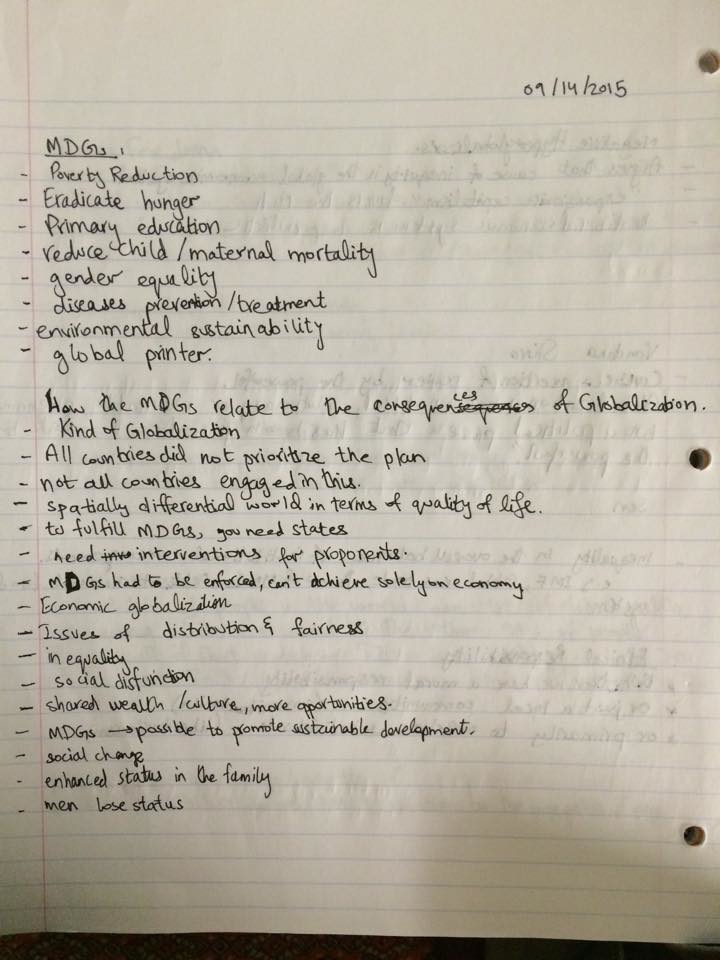 09/14/2015
MDGs,
- Poverty Reduction
- Eradicate hunger
- Primary education
- reduce child/maternal mortality
- gender equality
- diseases prevention/treatment
- environmental sustainability
- global printer.
How the MDGs relate to the consequences of Globalization.
- Kind of Globalization
- All countries did not prioritize the plan
- not all countries engaged in this.
- spatially differential world in terms of quality of life.
- to fulfill MDGs, you need states
- need interventions for proponents.
- MDGs had to be enforced, can't achieve solely on economy
- Economic globalization
- Issues of distribution & fairness
- inequality
- social disfunction
- shared wealth/culture, more opportunities.
- MDGs → possible to promote sustainable development.
- social change
- enhanced status in the family
- men lose status